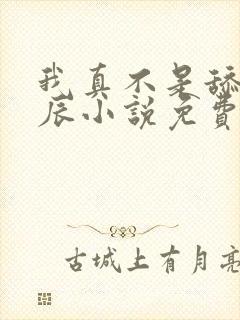 我真不是舔
辰小說免費
古城上有月亮